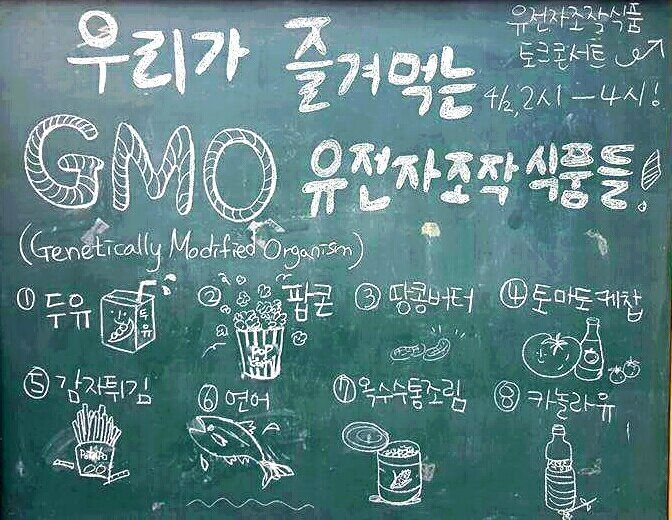 우리가 즐겨먹는
유전자조작식품
토크콘서트
4/2, 2시 - 4시!
GMO 유전자조작 식품들!
(Genetically Modified Organism)
① 두유
두유
② 팝콘
③ 땅콩버터
④ 토마토케찹
⑤ 감자튀김
Potato
⑥ 연어
⑦ 옥수수통조림
⑧ 카놀라유